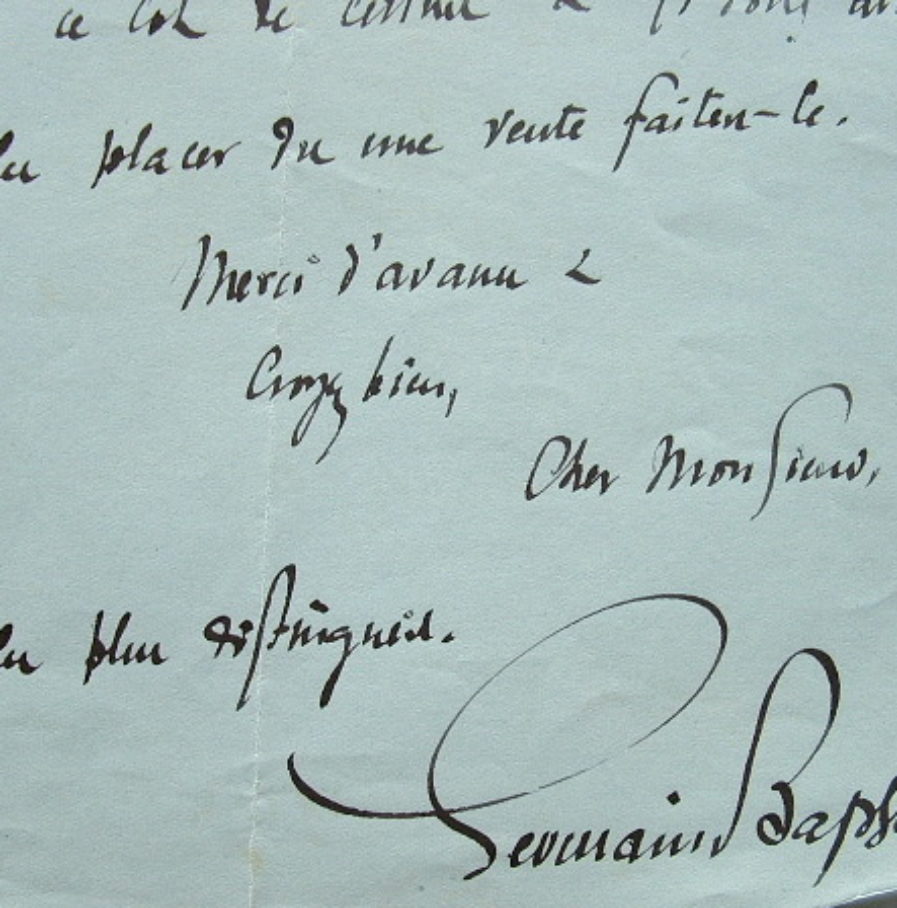 ce lot de
les placer ds une vente faites-le.
Merci d'avance &
Croyez bien,
Cher Monsieur,
les plus distingués.
Germain Baps